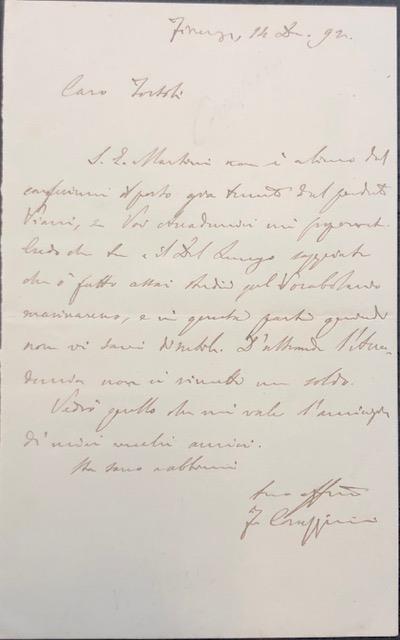 Firenze, 14 Dic. 92.
Caro Tortoli
S. E. Martini non è alieno dal
conferirmi il posto già tenuto dal perduto
Viani, se Voi Accademici mi
Credo che tu e il Del Lungo sappiate
che ò fatto assai studi pel Vocabolario
marinaresco, e in questa parte quindi
non vi sarei D'altronde l'Acca-
demia non ci rimette un soldo.
Vedrò quello che mi vale l'amicizia
di miei vecchi amici.
Sta sano e abbimi
tuo affmo
F. Corazzini